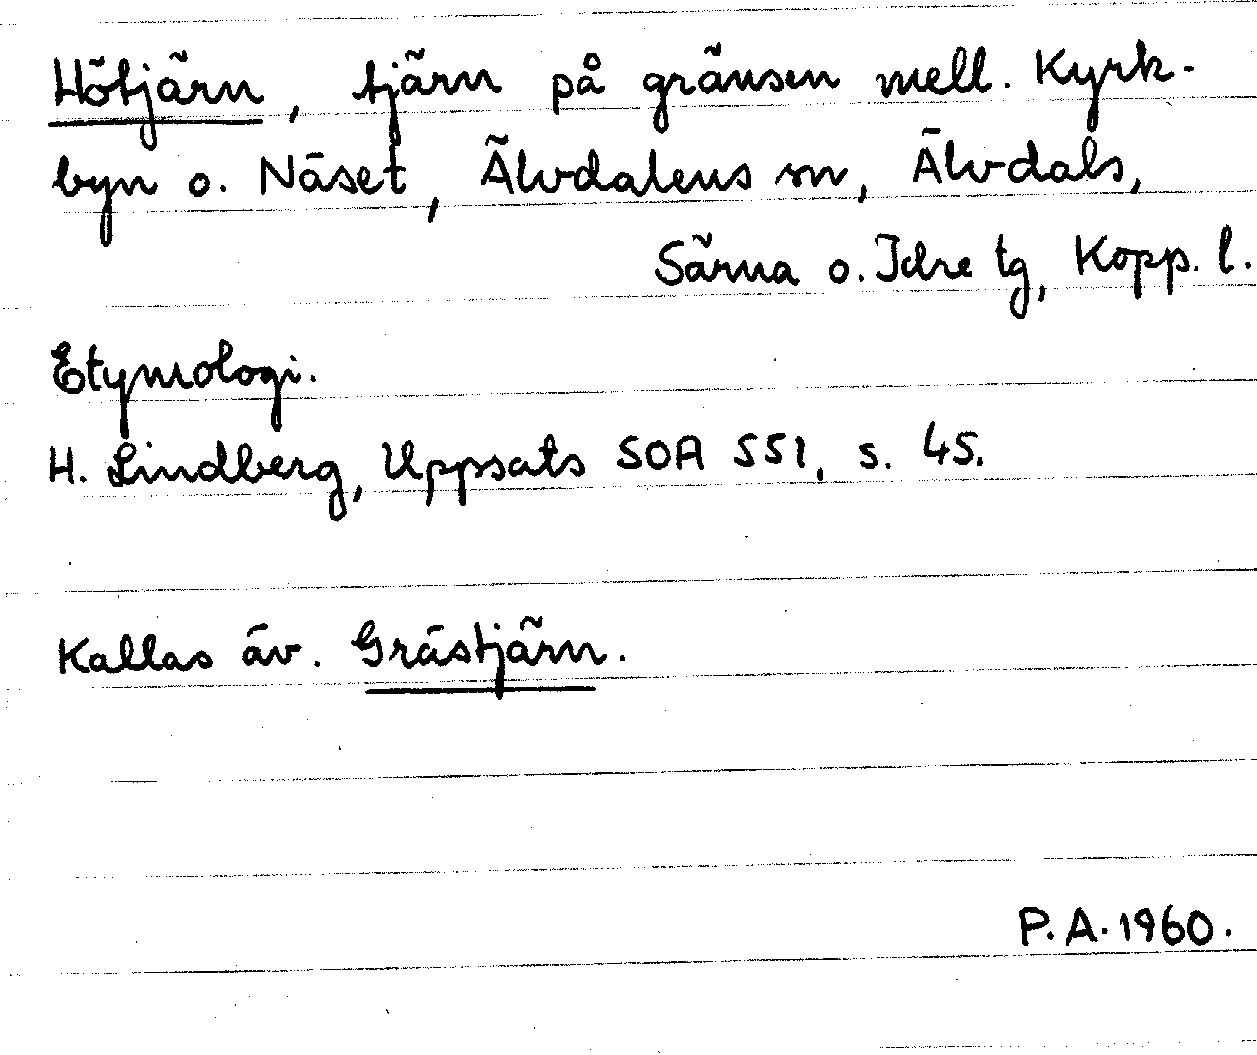 Hötjärn, tjärn på gränsen mell. Kyrk-
byn o. Näset, Älvdalens sn, Älvdals,
Särna o. Idre tg, Kopp. l.
Etymologi.
H. Lindberg, Uppsats SOA 551, s. 45.
Kallas äv. Grästjärn.
P.A. 1960.